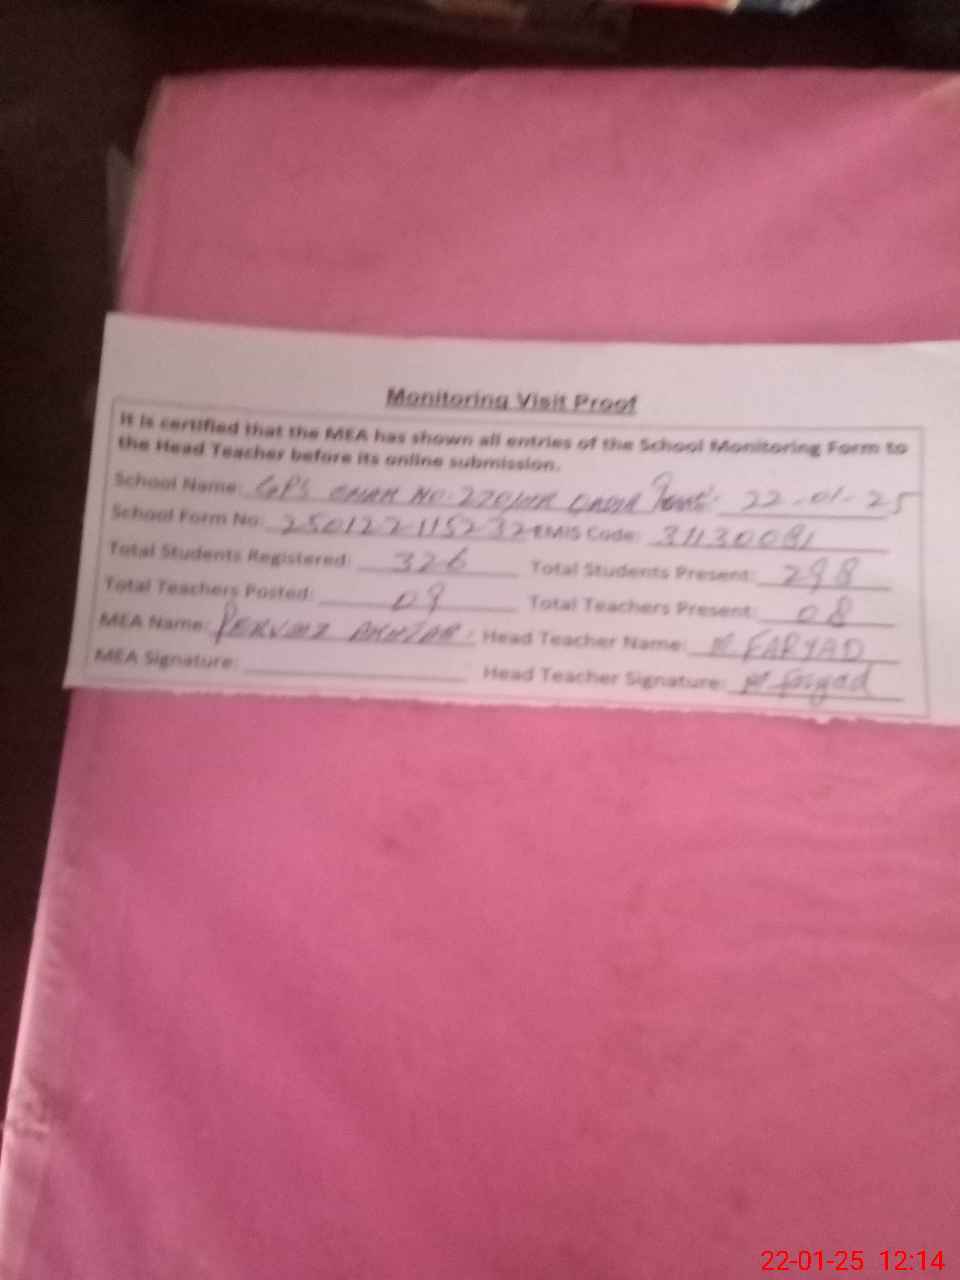 Monitoring Visit Proof
It is certified that the MEA has shown all entries of the School Monitoring Form to
the Head Teacher before its online submission.
School Name: GPS CHAK NO. 22-01-25
School Form No: EMIS Code:
Total Students Registered: 326 Total Students Present: 298
Total Teachers Posted: 09 Total Teachers Present: 08
MEA Name: PERVAIZ AKHTAR Head Teacher Name: M FARYAD
MEA Signature: Head Teacher Signature: M faryad
22-01-25 12:14